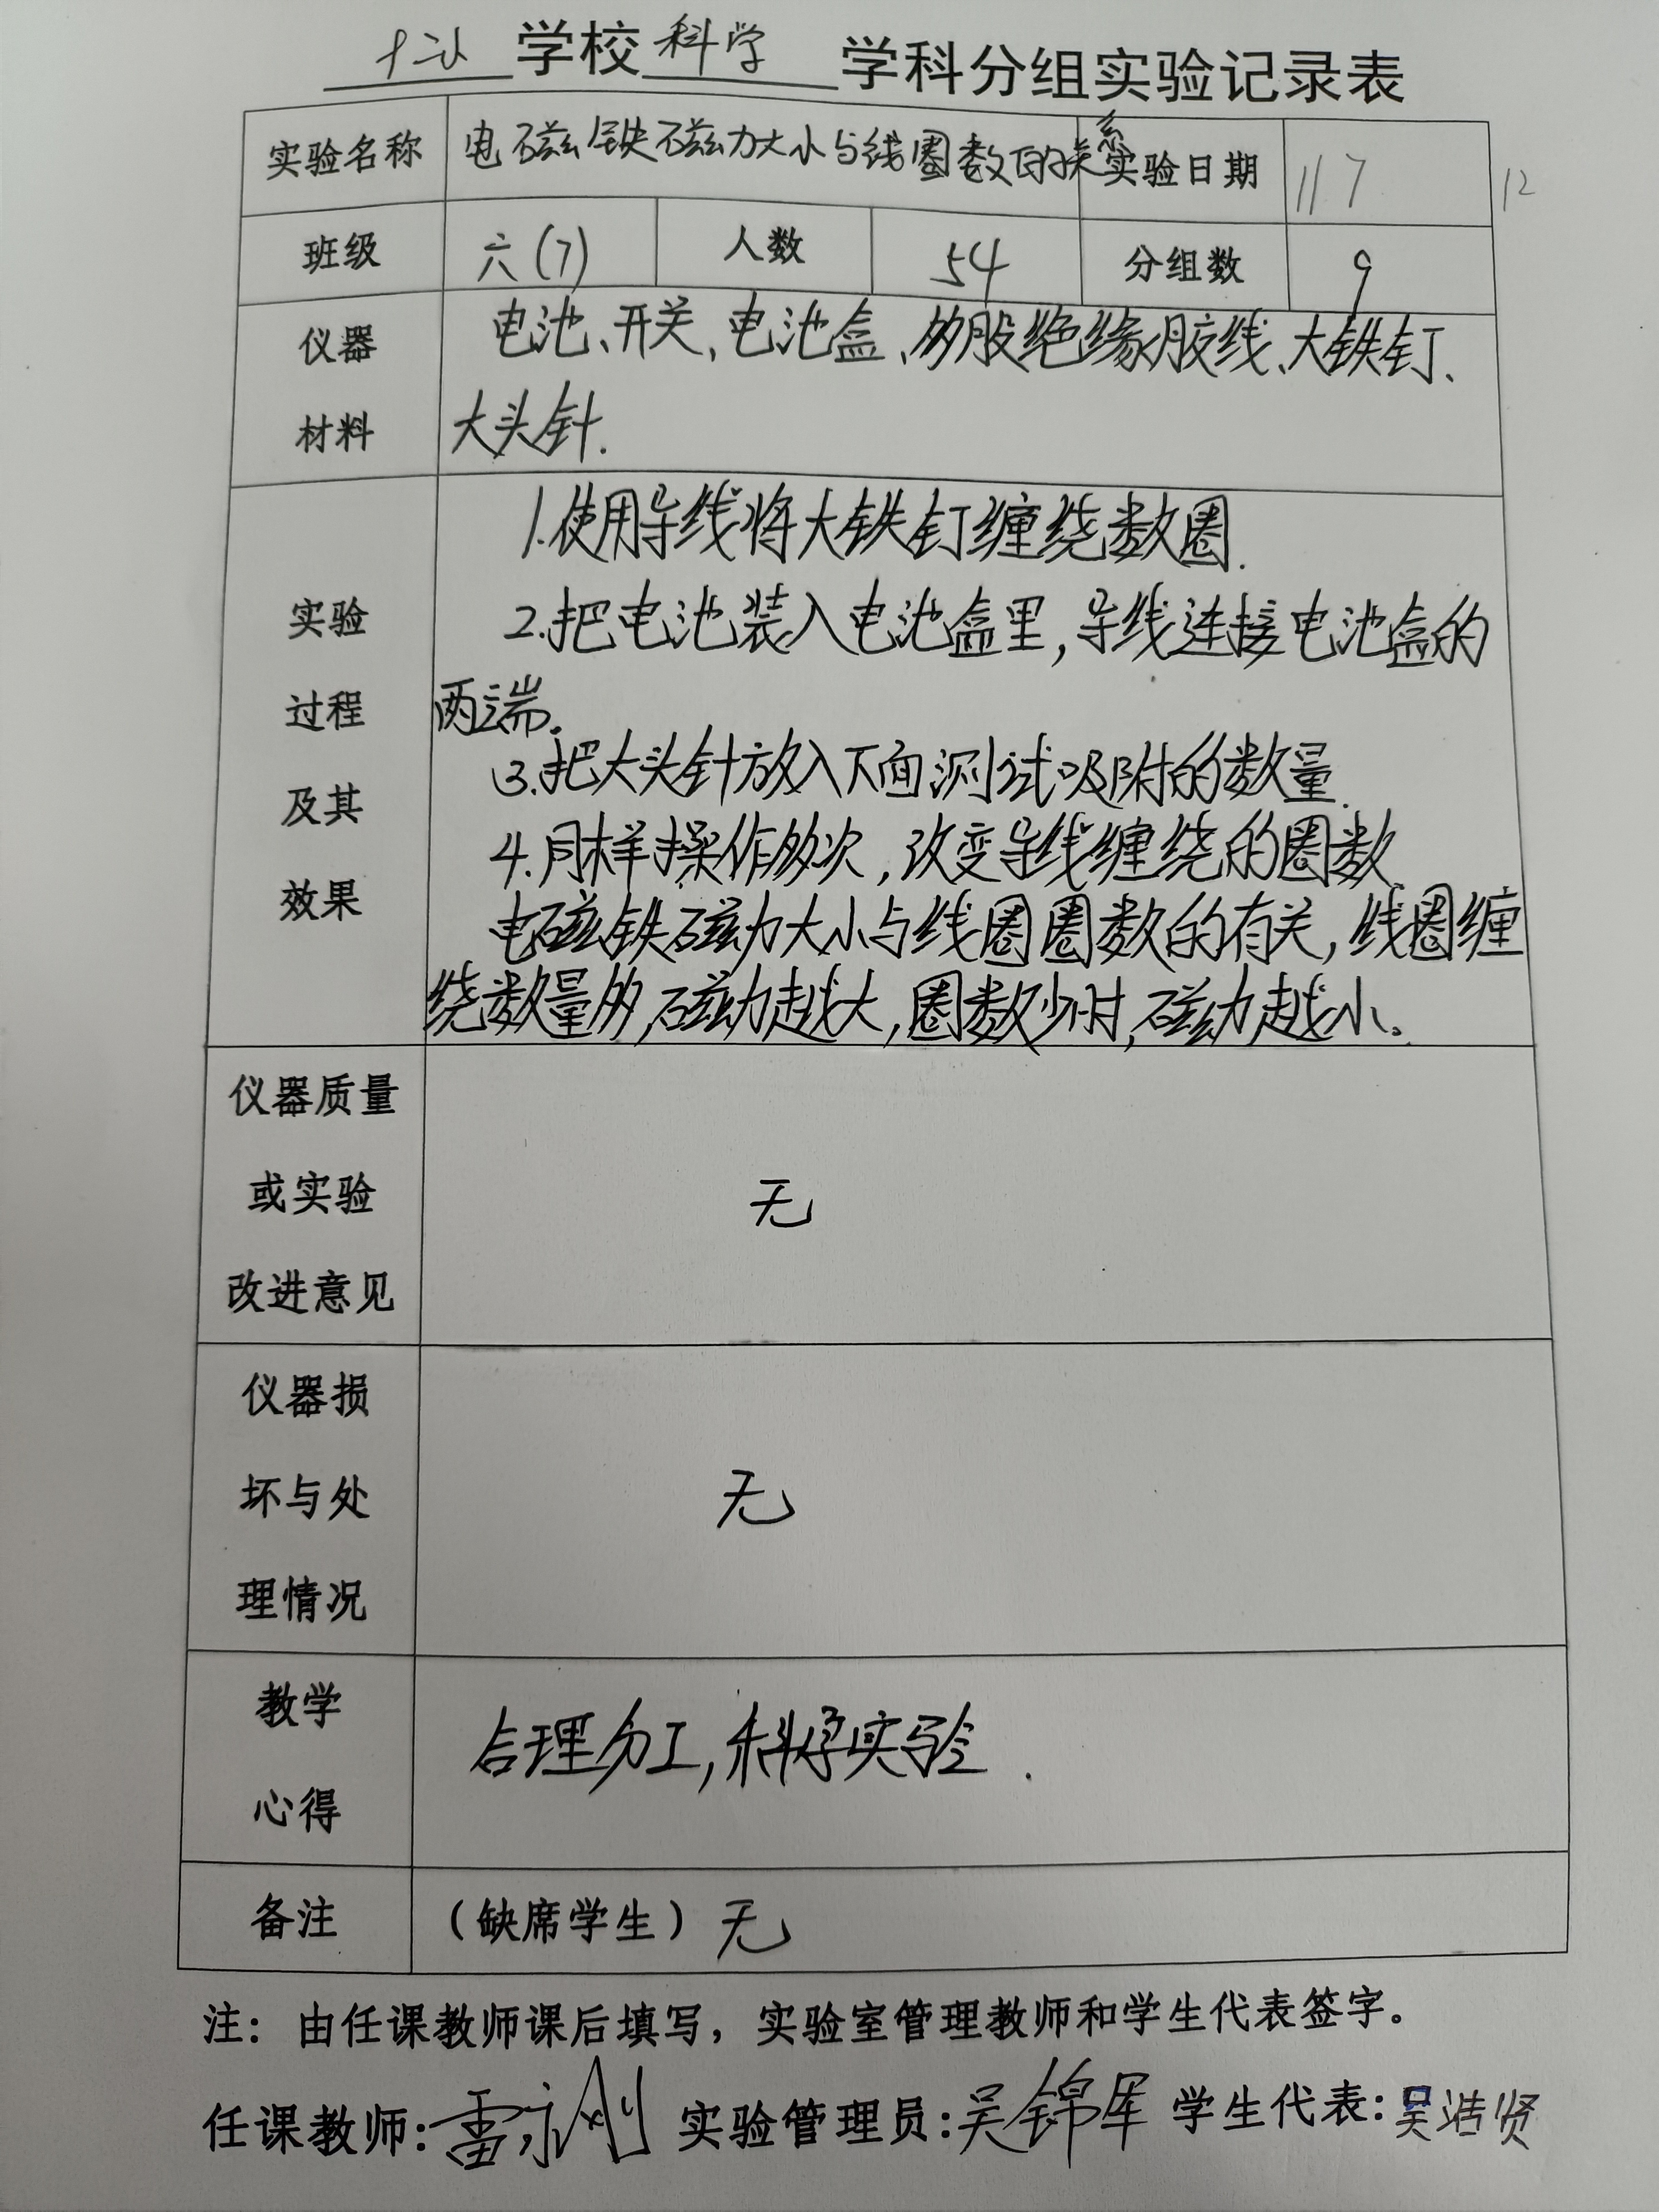 十二小学校科学学科分组实验记录表
实验名称 电磁铁磁力大小与线圈数的关系 实验日期 11 7 12
班级 六(7) 人数 54 分组数 9
仪器材料 电池、开关、电池盒、多股绝缘胶线、大铁钉、
大头针.
实验过程及其效果
1.使用导线将大铁钉缠绕数圈.
2.把电池装入电池盒里,导线连接电池盒的
两端.
3.把大头针放入下面测试吸附的数量.
4.同样操作多次,改变导线缠绕的圈数
电磁铁磁力大小与线圈圈数的有关,线圈缠
绕数量多,磁力越大,圈数少时,磁力越小。
仪器质量
或实验 无
改进意见
仪器损
坏与处 无
理情况
教学
心得 合理分工,科学实验.
备注 (缺席学生) 无
注: 由任课教师课后填写,实验室管理教师和学生代表签字。
任课教师:雷永刚 实验管理员:吴锦军 学生代表:吴浩贤